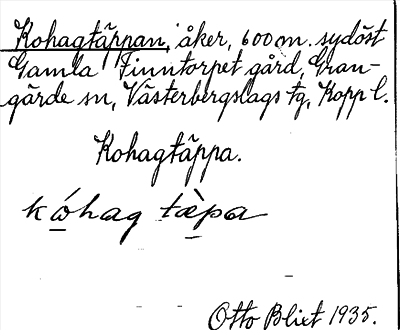 Kohagtäppan, åker, 600 m. sydöst
Gamla Finntorpet gård, Gran-
gärde sn, Västerbergslags tg, Kopp l.
Kohagtäppa.
kóhag tæ̀pa
Otto Blixt 1935.